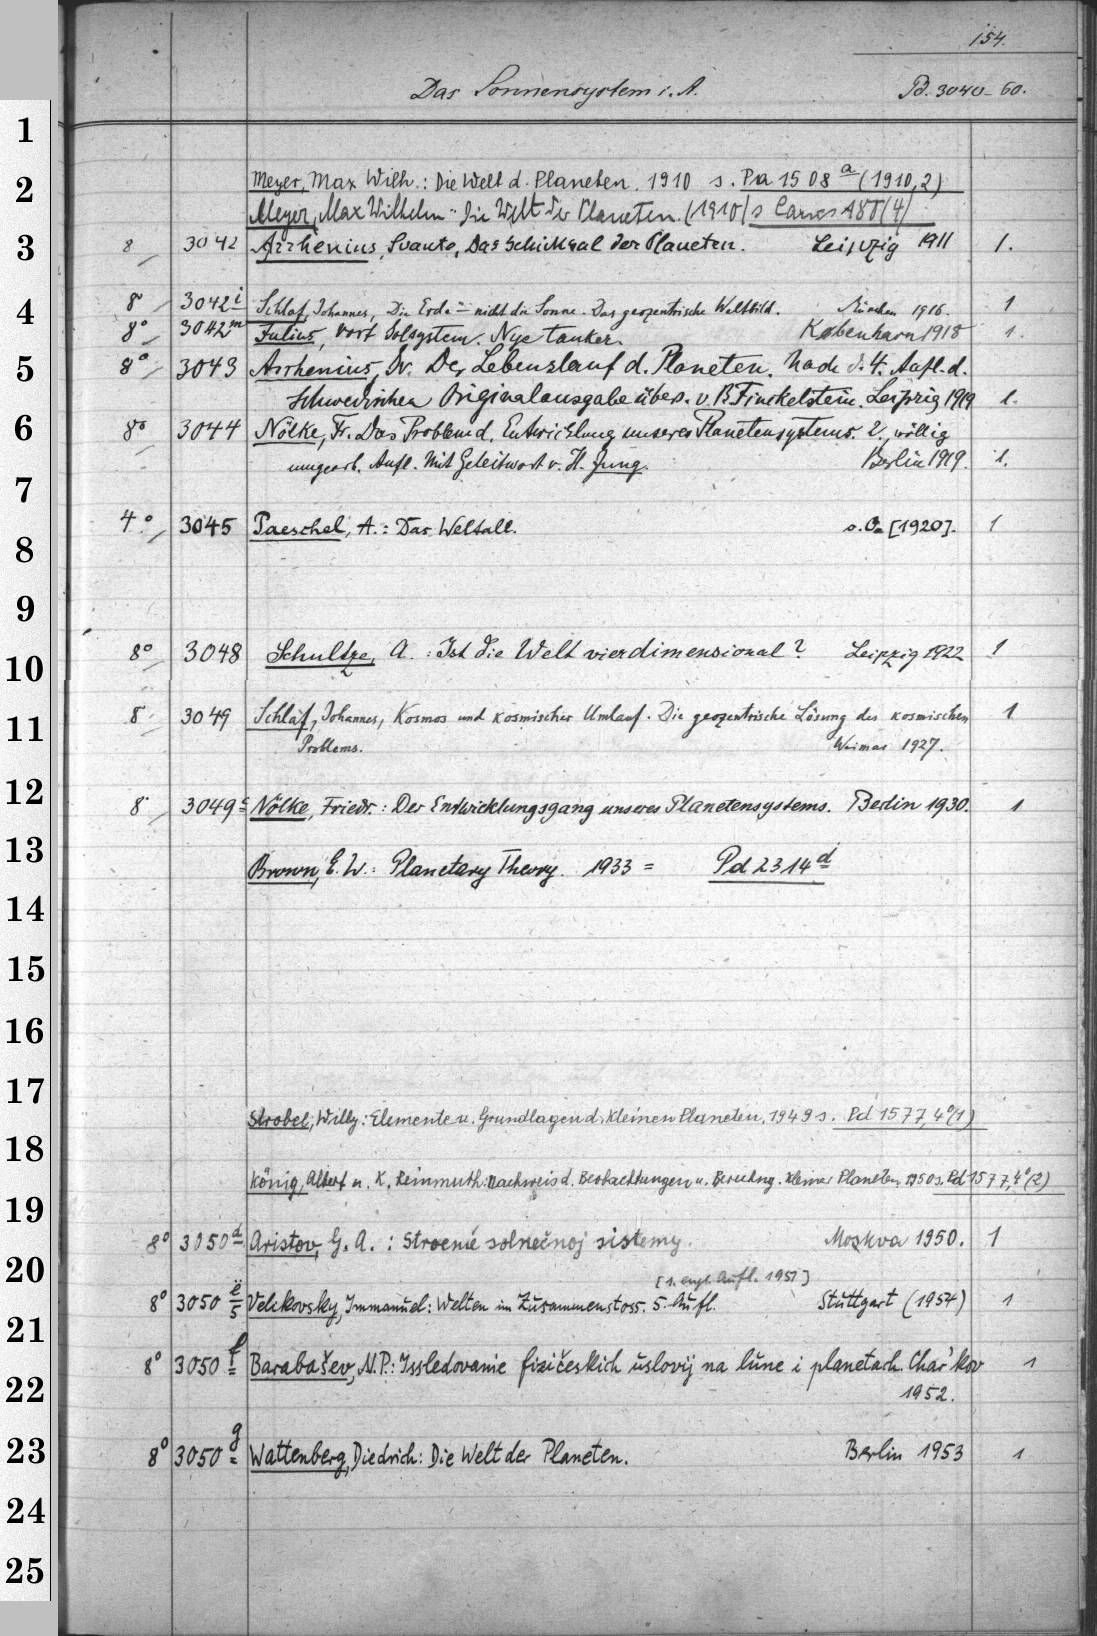 154.
Das Sonnensystem i. A. Pd. 3040-60.
1
Meyer, Max Wilh.: Die Welt d. Planeten. 1910 s. Pa 1508 a (1910,2)
2
Meyer, Max Wilhelm: Die Welt der Planeten. (1910) s
3
8 3042 Arrhenius, Svante, Das Schicksal der Planeten. Leipzig 1911 1.
4
8° 3042 i Schlaf, Johannes, Die Erde - nicht die Sonne. Das geozentrische Weltbild. München 1916. 1
8° 3042 m Julius, Vort Solsystem. Nye tanker. København 1918 1.
5
8° 3043 Arrhenius, Sv. Der Lebenslauf d. Planeten. Nach d. 4. Aufl. d.
Schwedischen Originalausgabe übers. v. B. Finckelstein. Leipzig 1919 1.
6
8° 3044 Nölke, Fr. Das Problem d. Entwicklung unseres Planetensystems. 2. völlig
umgearb. Aufl. Mit Geleitwort v. H. Jung. Berlin 1919. 1.
7
4° 3045 Paeschel, A.: Das Weltall. s. O. [1920]. 1
8
9
10
8° 3048 Schultze, A.: Ist die Welt vierdimensional? Leipzig 1922 1
11
8° 3049 Schlaf, Johannes, Kosmos und kosmischer Umlauf. Die geozentrische Lösung des kosmischen
Problems. Weimar 1927. 1
12
8° 3049 c Nölke, Friedr.: Der Entwicklungsgang unseres Planetensystems. Berlin 1930. 1
13
Brown, E. W.: Planetary Theory. 1933 = Pd 2314 d
14
15
16
17
Strobel, Willy: Elemente u. Grundlagen d. kleinen Planeten, 1949 s. Pd 1577, 4°(1)
18
König, Albert u. K. Reinmuth: Nachweis d. Beobachtungen u. Berechng. kleiner Planeten, 1950 s. Pd 1577, 4°(2)
19
8° 3050 d Aristov, G. A.: Stroenie solnečnoj sistemy. Moskva 1950. 1
20
[1. engl. Aufl. 1951]
8° 3050 e/5 Velikovsky, Immanuel: Welten im Zusammenstoss. 5. Aufl. Stuttgart (1954) 1
21
8° 3050 f Barabašev, N.P.: Issledovanie fizičeskich uslovij na lune i planetach. Char'kov
1952. 1
22
23
8° 3050 g Wattenberg, Diedrich: Die Welt der Planeten. Berlin 1953 1
24
25